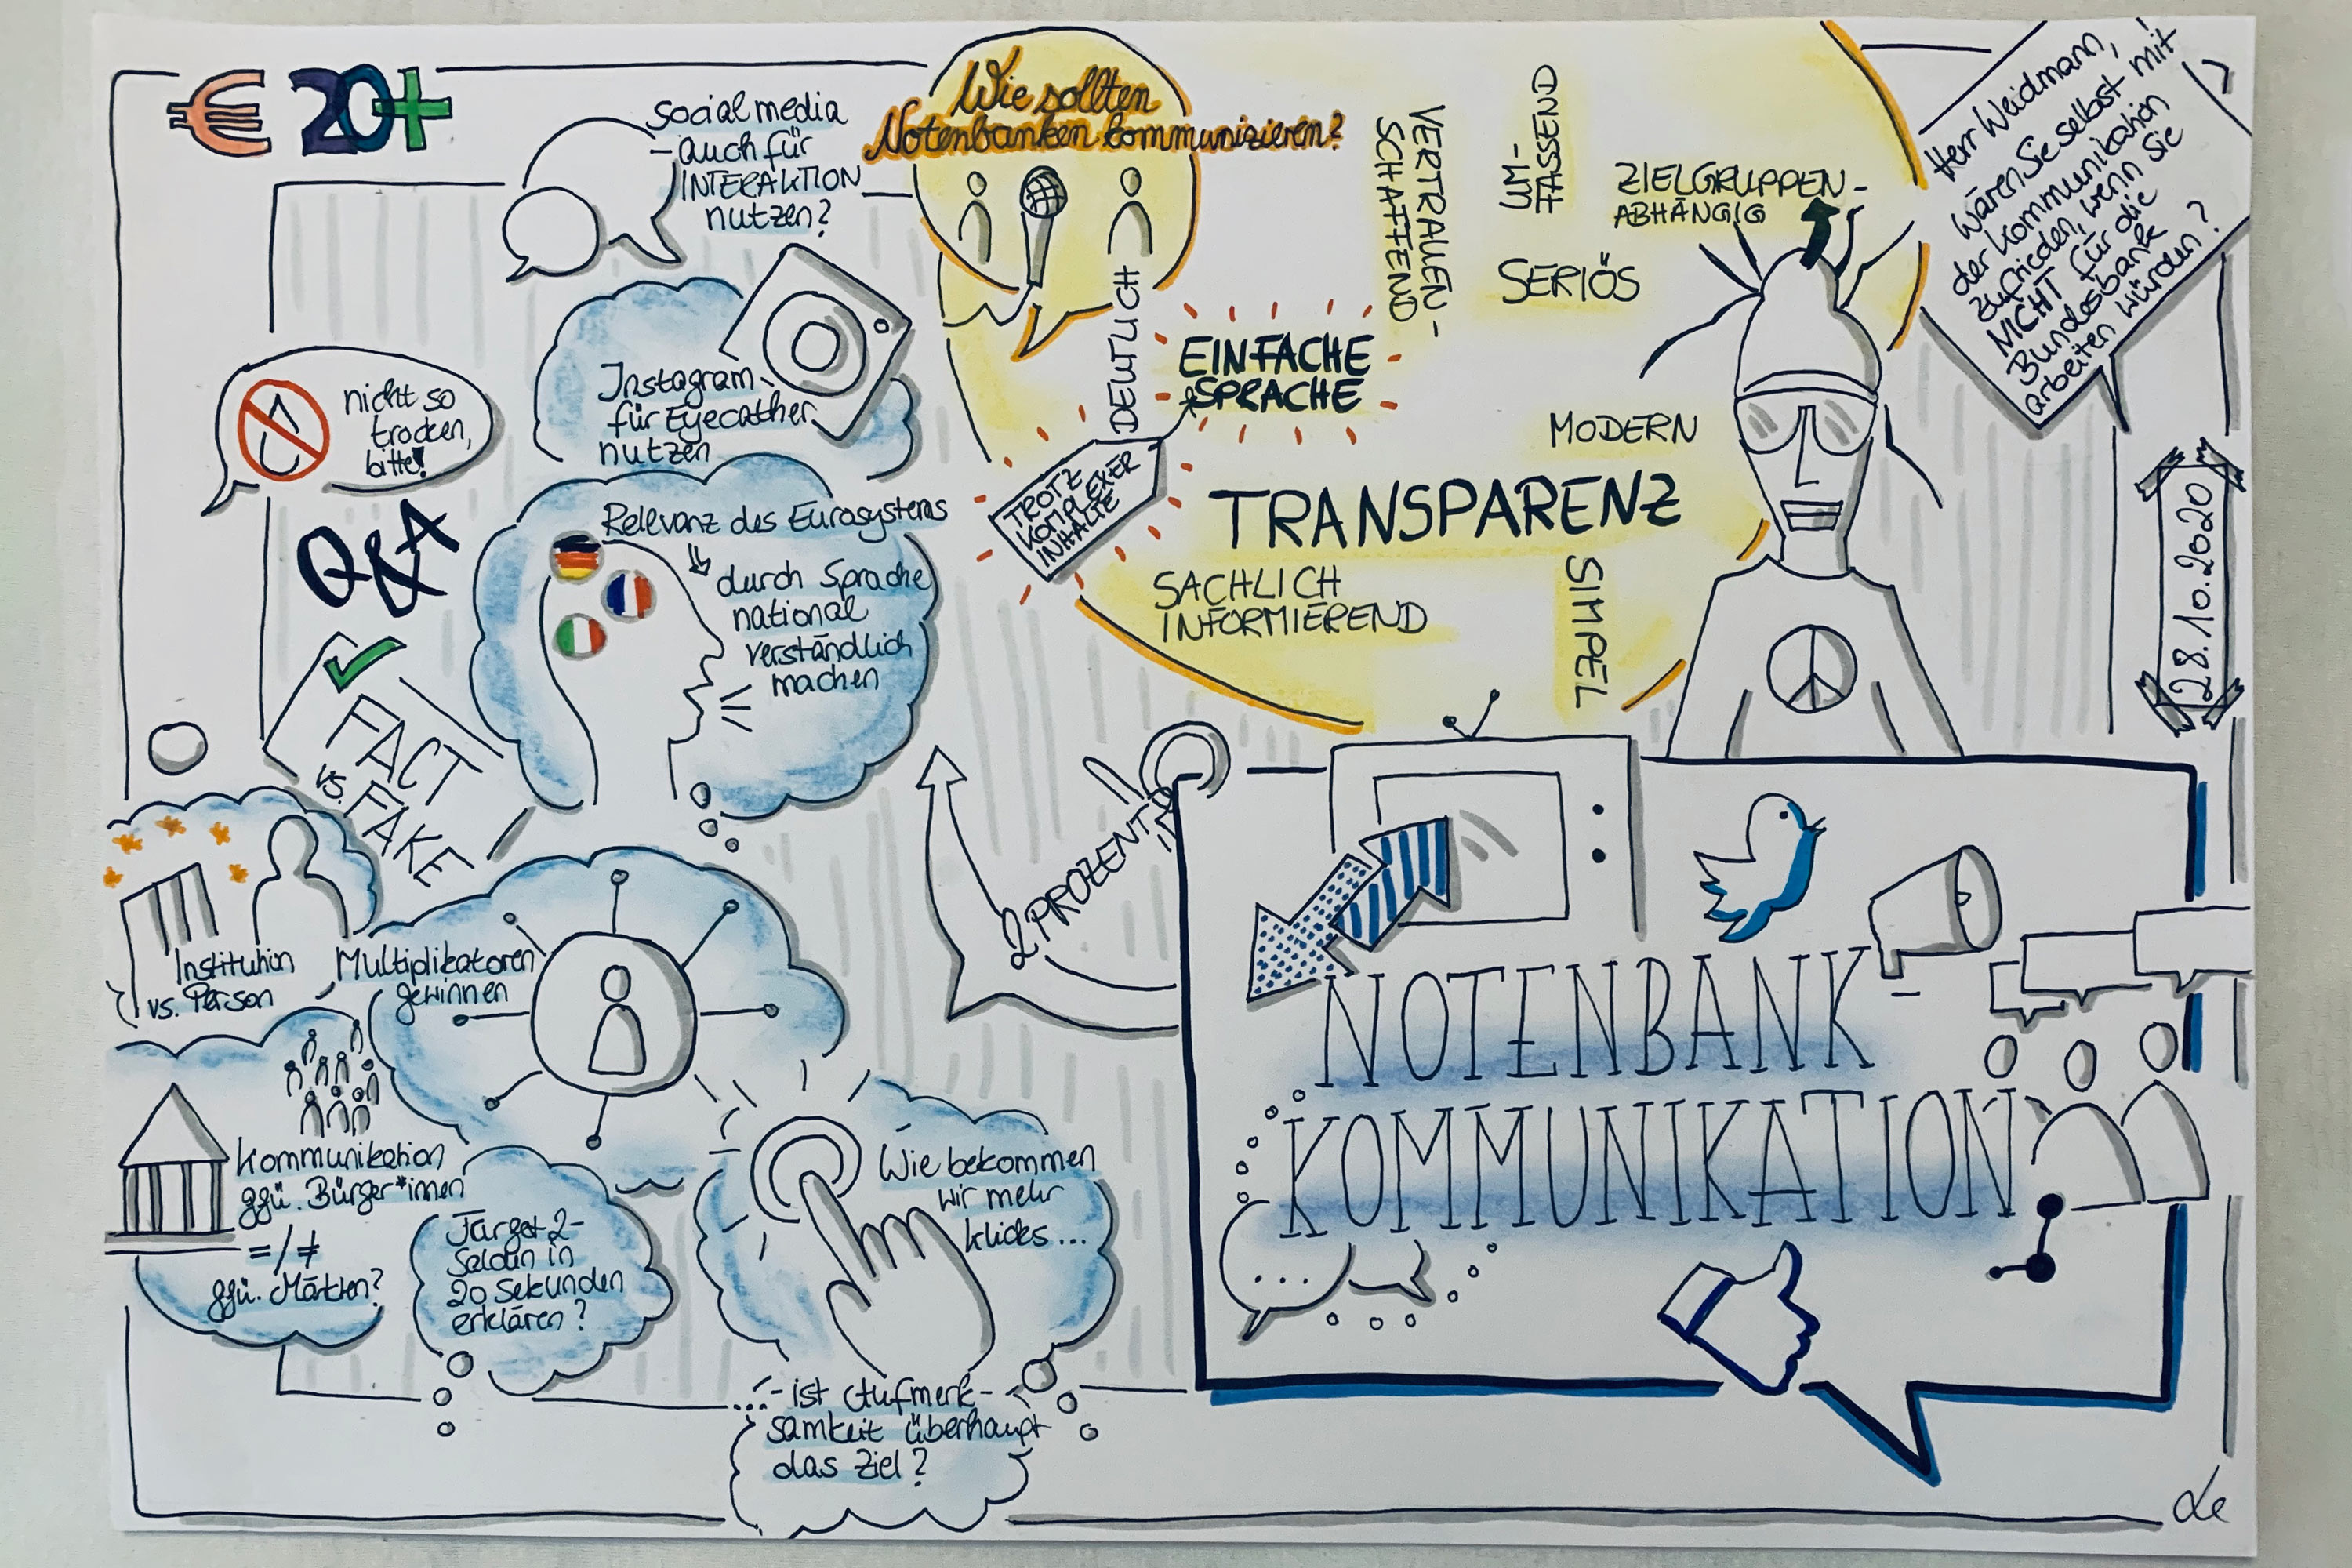 € 20+
social media
- auch für
INTERAKTION
nutzen?
Wie sollten
Notenbanken kommunizieren?
DEUTLICH
VERTRAUEN-
SCHAFFEND
UM-
FASSEND
ZIELGRUPPEN-
ABHÄNGIG
SERIÖS
EINFACHE
SPRACHE
TROTZ
KOMPLEXER
INHALTE
MODERN
TRANSPARENZ
SACHLICH
INFORMIEREND
SIMPEL
Herr Weidmann,
wären Sie selbst mit
der Kommunikation
zufrieden, wenn Sie
NICHT für die
Bundesbank
arbeiten würden?
28.10.2020
Instagram
für Eyecather
nutzen
nicht so
trocken,
bitte!
Q&A
Relevanz des Eurosystems
durch Sprache
national
verständlich
machen
FACT
vs. FAKE
Institution
vs. Person
Multiplikatoren
gewinnen
2 PROZENT
Kommunikation
ggü. Bürger*innen
=/≠
ggü. Märkten?
Target-2-
Salden in
20 Sekunden
erklären?
Wie bekommen
wir mehr
klicks...
...- ist Aufmerk-
samkeit überhaupt
das Ziel?
NOTENBANK-
KOMMUNIKATION